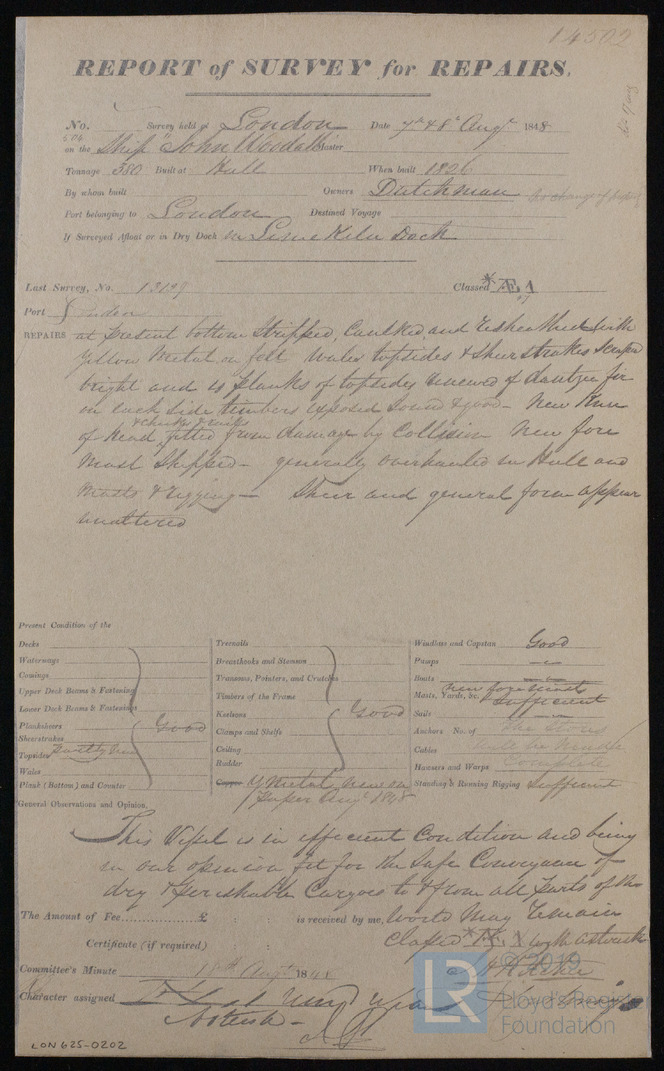 14502
REPORT of SURVEY for REPAIRS.
No. Survey held at London Date 7th & 8th Augt 1848
on the Ship "John Woodall" Master
Tonnage 380 Built at Hull When built 1826
By whom built Owners Dutchman
Port belonging to London Destined Voyage
If Surveyed Afloat or in Dry Dock in Lime Kiln Dock
Last Survey, No. 13199 Classed *Æ 1
Port London
REPAIRS at present bottom Stripped, Caulked and Resheathed with
Yellow Metal on felt Water topsides & Sheerstrakes Scraped
bright and 4 planks of topsides renewed of Dantzic fir
on each side timbers exposed sound & good - New Knee
& cheeks & rails
of Head, fitted from damage by Collision New fore
Mast Shipped - generally overhauled in Hull and
Masts & Rigging - Sheer and general form appear
unaltered
Present Condition of the
Decks
Waterways
Comings
Upper Deck Beams & Fastenings
Lower Deck Beams & Fastenings
Planksheers Good
Sheerstrakes
Topsides Partly New
Wales
Plank (Bottom) and Counter
Treenails
Breasthooks and Stemson
Transoms, Pointers, and Crutches
Timbers of the Frame
Keelsons Good
Clamps and Shelfs
Ceiling
Rudder
Copper Y Metal new on
Paper Augt 1848
Windlass and Capstan Good
Pumps
Boats
Masts, Yards, &c. New fore Mast
Sufficient
Sails
Anchors No. of
Cables
Hawsers and Warps Complete
Standing & Running Rigging Sufficient
General Observations and Opinion,
This Vessel is in efficient Condition and being
in our opinion fit for the Safe Conveyance of
dry & perishable Cargoes to & from all parts of the
The Amount of Fee £ : : is received by me, World May Remain
Certificate (if required) : Classed *Æ 1 with asterisk
Committee's Minute 18th Augt 1848
Character assigned
Asterisk -
LR
© 2019
Lloyd's Register
Foundation
LON625-0202